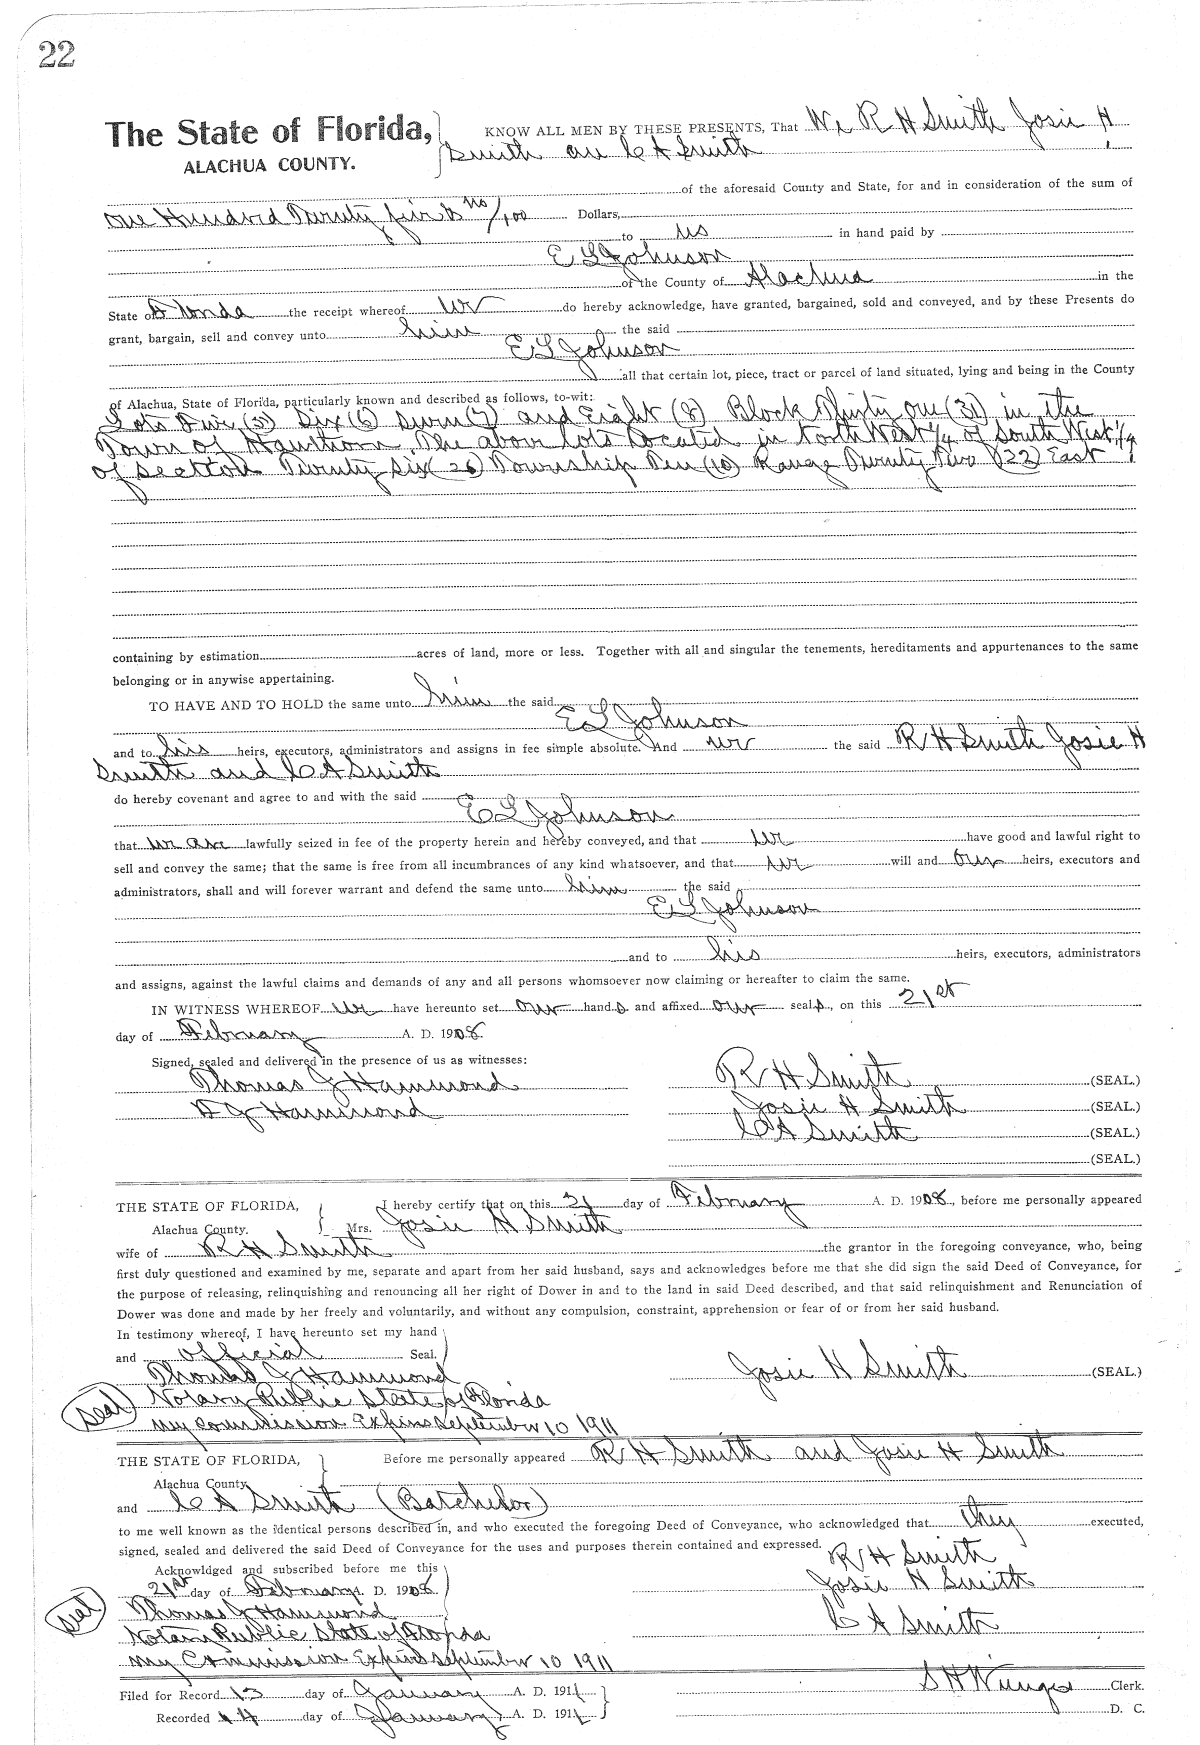 22
The State of Florida,
ALACHUA COUNTY.
KNOW ALL MEN BY THESE PRESENTS, That We R H Smith Josie H
Smith an C A Smith
of the aforesaid County and State, for and in consideration of the sum of
One Hundred Twenty five & no/100 Dollars,
to us in hand paid by
E L Johnson
of the County of Alachua in the
State of Florida the receipt whereof we do hereby acknowledge, have granted, bargained, sold and conveyed, and by these Presents do
grant, bargain, sell and convey unto him the said
E L Johnson
all that certain lot, piece, tract or parcel of land situated, lying and being in the County
of Alachua, State of Florida, particularly known and described as follows, to-wit:
Lots Five (5) Six (6) Seven (7) and Eight (8) Block Thirty one (31) in the
Town of Hawthorn. The above Lots Located in North West 1/4 of South West 1/4
of Section Twenty Six (26) Township Ten (10) Range Twenty Two (22) East
containing by estimation acres of land, more or less. Together with all and singular the tenements, hereditaments and appurtenances to the same
belonging or in anywise appertaining.
TO HAVE AND TO HOLD the same unto him the said
E L Johnson
and to his heirs, executors, administrators and assigns in fee simple absolute. And we the said R H Smith Josie H
Smith and C A Smith
do hereby covenant and agree to and with the said
E L Johnson
that we are lawfully seized in fee of the property herein and hereby conveyed, and that we have good and lawful right to
sell and convey the same; that the same is free from all incumbrances of any kind whatsoever, and that we will and our heirs, executors and
administrators, shall and will forever warrant and defend the same unto him the said
E L Johnson
and to his heirs, executors, administrators
and assigns, against the lawful claims and demands of any and all persons whomsoever now claiming or hereafter to claim the same.
IN WITNESS WHEREOF we have hereunto set our hands and affixed our seals, on this 21st
day of February A. D. 1908.
Signed, sealed and delivered in the presence of us as witnesses:
Thomas J Hammond R H Smith (SEAL.)
A J Hammond Josie H Smith (SEAL.)
C A Smith (SEAL.)
(SEAL.)
THE STATE OF FLORIDA, I hereby certify that on this 21 day of February A. D. 1908, before me personally appeared
Alachua County. Mrs. Josie H Smith
wife of R H Smith the grantor in the foregoing conveyance, who, being
first duly questioned and examined by me, separate and apart from her said husband, says and acknowledges before me that she did sign the said Deed of Conveyance, for
the purpose of releasing, relinquishing and renouncing all her right of Dower in and to the land in said Deed described, and that said relinquishment and Renunciation of
Dower was done and made by her freely and voluntarily, and without any compulsion, constraint, apprehension or fear of or from her said husband.
In testimony whereof, I have hereunto set my hand
and official Seal.
Thomas J Hammond Josie H Smith (SEAL.)
Seal Notary Public State of Florida
My Commission Expires September 10 1911
THE STATE OF FLORIDA, Before me personally appeared R H Smith and Josie H Smith
Alachua County
and C A Smith (Batchelor)
to me well known as the identical persons described in, and who executed the foregoing Deed of Conveyance, who acknowledged that they executed,
signed, sealed and delivered the said Deed of Conveyance for the uses and purposes therein contained and expressed.
R H Smith
Acknowldged and subscribed before me this
Josie H Smith
21st day of February A. D. 1908.
Seal Thomas J Hammond
C A Smith
Notary Public State of Florida
My Commission Expires September 10 1911
Filed for Record 13 day of January A. D. 1911 S H Wienges Clerk.
Recorded 14 day of January A. D. 1911 D. C.